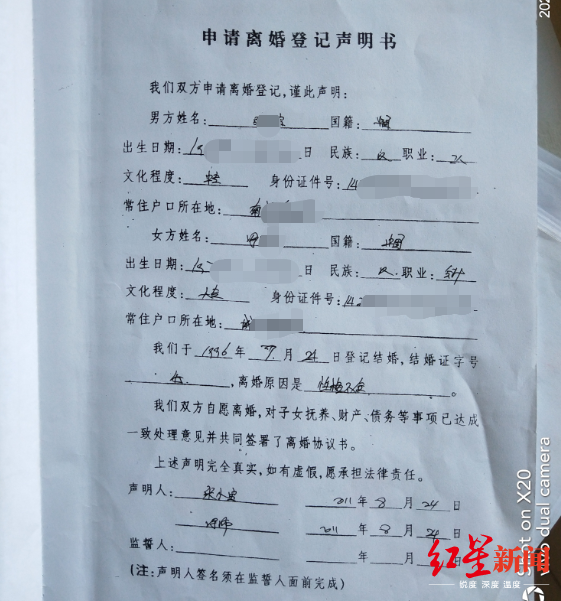 202
申请离婚登记声明书
我们双方申请离婚登记,谨此声明:
男方姓名: 国籍: 中国
出生日期: 19 日 民族: 汉 职业: 工人
文化程度: 身份证件号: 14
常住户口所在地:
女方姓名: 国籍: 中国
出生日期: 19 日 民族: 汉 职业:
文化程度: 大专 身份证件号: 142
常住户口所在地:
我们于 1996 年 月 24 日登记结婚,结婚证字号
,离婚原因是 性格不合 。
我们双方自愿离婚,对子女抚养、财产、债务等事项已达成
一致处理意见并共同签署了离婚协议书。
上述声明完全真实,如有虚假,愿承担法律责任。
声明人: 2011 年 8 月 24 日
2011 年 8 月 24 日
监誓人: 年 月 日
(注:声明人签名须在监誓人面前完成)
红星新闻
锐度 深度 温度
Shot on X20
vivo dual camera